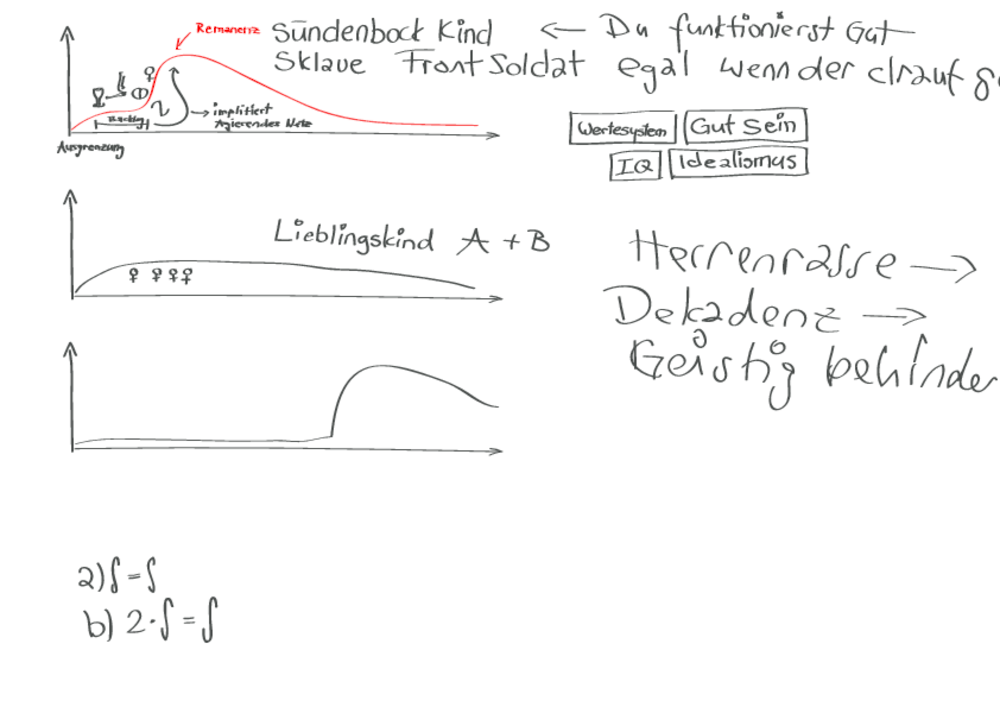 Remanenz
Sündenbock Kind ← Du funktionierst Gut
Sklave Front Soldat egal wenn der drauf g
→ implitiert
Agierendes Netz
Ausgrenzung
Wertesystem Gut Sein
IQ Idealismus
Lieblingskind A + B
♀ ♀♀♀
Herrenrasse →
Dekadenz →
Geistig behinder
a) ∫ = ∫
b) 2·∫ = ∫